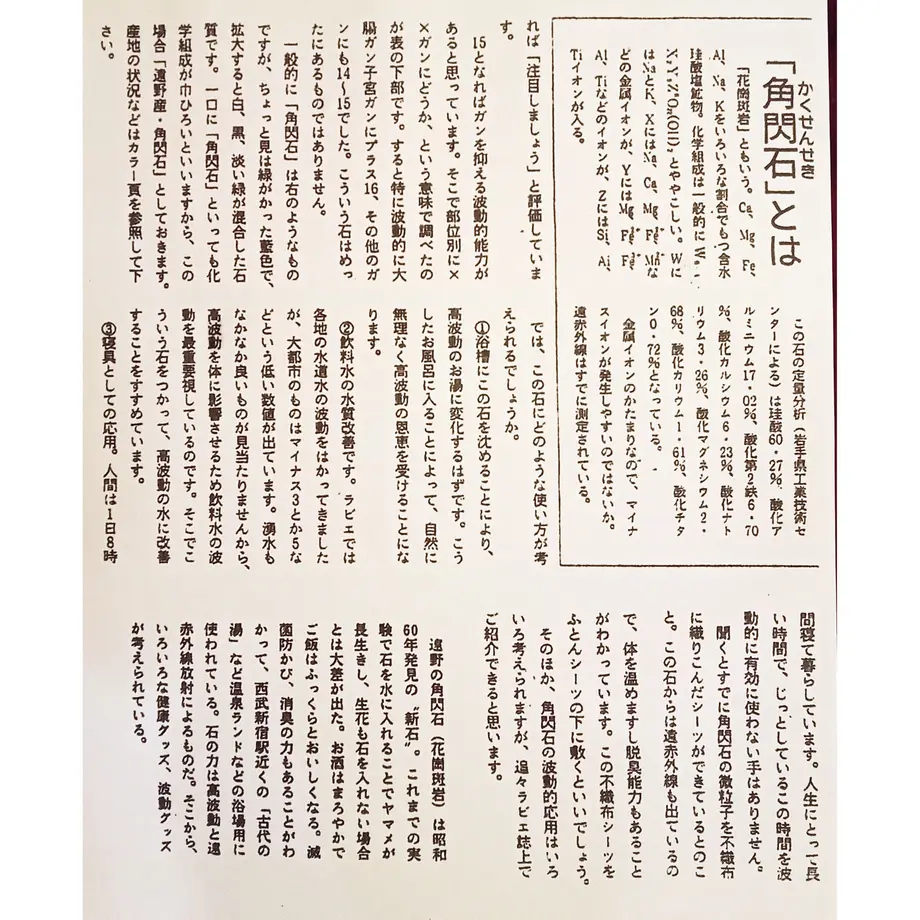 かくせんせき
「角閃石」とは
「花崗斑岩」ともいう。Ca、Mg、Fe、
Al、Na、Kをいろいろな割合でもつ含水
珪酸塩鉱物。化学組成は一般的に
とややこしい。Wに
はNaとK、XにはNa、Ca、Mg、な
どの金属イオンが、YにはMg、
Al、TiなどのイオンがZにはSi、Al、
Tiイオンが入る。
この石の定量分析(岩手県工業技術セ
ンターによる)は珪酸60・27%、酸化ア
ルミニウム17・02%、酸化第2鉄6・70
%、酸化カルシウム6・23%、酸化ナト
リウム3・26%、酸化マグネシウム2・
68%、酸化カリウム1・61%、酸化チタ
ン0・72%となっている。
金属イオンのかたまりなので、マイナ
スイオンが発生しやすいのではないか。
遠赤外線はすでに測定されている。
れば「注目しましょう」と評価していま
す。
15となればガンを抑える波動的能力が
あると思っています。そこで部位別に×
×ガンにどうか、という意味で調べたの
が表の下部です。すると特に波動的に大
腸ガン子宮ガンにプラス16、その他のガ
ンにも14~15でした。こういう石はめっ
たにあるものではありません。
一般的に「角閃石」は右のようなもの
ですが、ちょっと見は緑がかった藍色で、
拡大すると白、黒、淡い緑が混合した石
質です。一口に「角閃石」といっても化
学組成が巾ひろいといいますから、この
場合「遠野産・角閃石」としておきます。
産地の状況などはカラー頁を参照して下
さい。
では、この石にどのような使い方が考
えられるでしょうか。
①浴槽にこの石を沈めることにより、
高波動のお湯に変化するはずです。こう
したお風呂に入ることによって、自然に
無理なく高波動の恩恵を受けることにな
ります。
②飲料水の水質改善です。ラビエでは
各地の水道水の波動をはかってきました
が、大都市のものはマイナス3とか5な
どという低い数値が出ています。湧水も
なかなか良いものが見当たりませんから、
高波動を体に影響させるため飲料水の波
動を最重要視しているのです。そこでこ
ういう石をつかって、高波動の水に改善
することをすすめています。
③寝具としての応用。人間は1日8時
間寝て暮らしています。人生にとって長
い時間で、じっとしているこの時間を波
動的に有効に使わない手はありません。
聞くとすでに角閃石の微粒子を不織布
に織りこんだシーツができているとのこ
と。この石からは遠赤外線も出ているの
で、体を温めますし脱臭能力もあること
がわかっています。この不織布シーツを
ふとんシーツの下に敷くといいでしょう。
そのほか、角閃石の波動的応用はいろ
いろ考えられますが、追々ラビエ誌上で
ご紹介できると思います。
遠野の角閃石(花崗斑岩)は昭和
60年発見の〝新石〟。これまでの実
験で石を水に入れることでヤマメが
長生きし、生花も石を入れない場合
とは大差が出た。お酒はまろやかで
ご飯はふっくらとおいしくなる。滅
菌防かび、消臭の力もあることがわ
かって、西武新宿駅近くの「古代の
湯」など温泉ランドなどの浴場用に
使われている。石の力は高波動と遠
赤外線放射によるものだ。そこから、
いろいろな健康グッズ、波動グッズ
が考えられている。